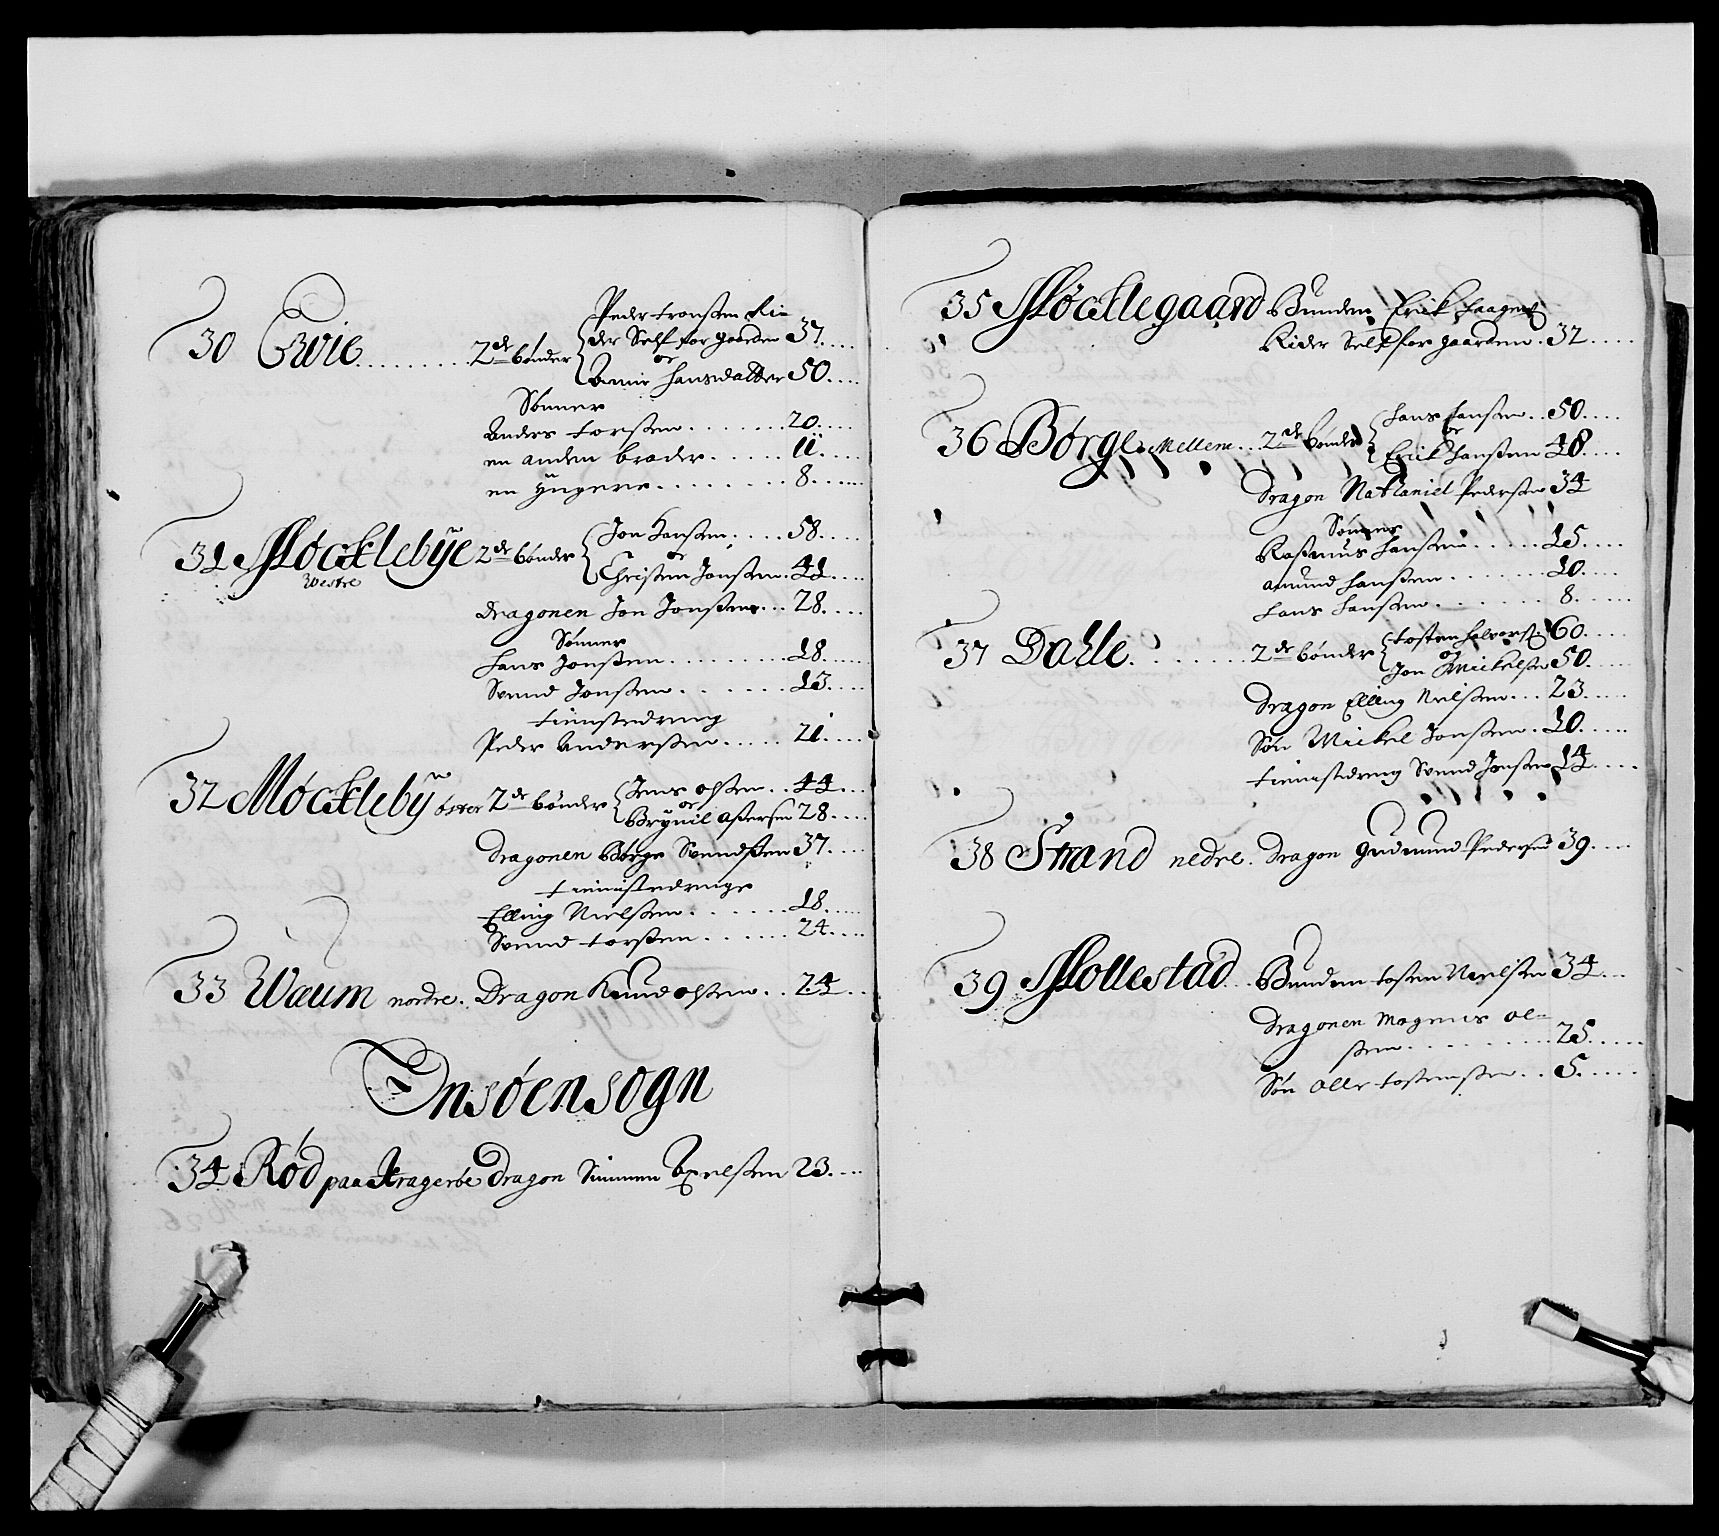 30 Evie 2de bønder Peder tronsen Ri=
der Self for gaarden 37
oc
Anne hansdatter 50
Sønner
Anders torsen 20
en anden broder 11
en yngere 8
31 Møcklebye 2de bønder Jon hansen 58
westre oc
Christen Jonsen 41
dragonen Jon Jonsen 28
Sønner
hans Jonsen 18
Svend Jonsen 13
tienistedreng
Peder Andersen 21
32 Møckleby 2de bønder Jens olsen 44
oc
Brynil asersen 28
dragonen Børge Svendsen 37
tienistedrenge
Elling Nielsen 18
Svend torsen 24
33 Waum nordre. Dragon Knud olsen 24
Onsøensogn
34 Rød paa Kragerøe Dragon Simmen Axelsen 23
35 Møcklegaard Bunden Erik
Rider Self for gaarden 32
36 Børge Mellem 2de bønder hans hansen 50
oc
Erik hansen 48
dragon Nathaniel Pedersen 34
Sønner
Rasmus hansen 15
amund hansen 10
hans hansen 8
37 Dahle 2de bønder tosten halvors: 60
og
Jon Mickelsen 50
dragon Elling Nielsen 23
Søn Mickel Jonsen 10
tienistedreng Svend Jonsen 14
38 Strand nedre. dragon gudmund Pedersen 39
39 Mollestad Bunden tosten Nielsen 34
dragonen Mogens ol=
sen 25
Søn olle tostensen 5